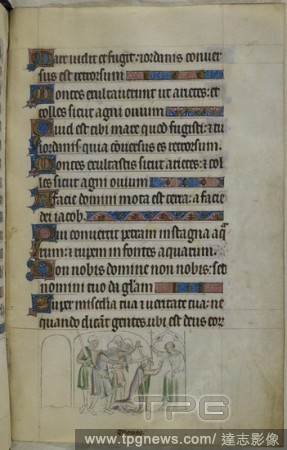 Mare vidit et fugit: iordanis conver
sus est retrorsum
Montes exultaverunt ut arietes: et
colles sicut agni ovium
Quid est tibi mare quod fugisti: et tu
iordanis quia conversus es retrorsum.
Montes exultastis sicut arietes: et col
les sicut agni ovium
A facie domini mota est terra: a facie
dei iacob.
Qui convertit petram in stagna aq
rum: et rupem in fontes aquarum.
Non nobis domine non nobis: set
nomini tuo da gliam
Super misericordia tua et veritate tua: ne
quando dicant gentes: ubi est deus eor
TPG
www.tpgnews.com/ 達志影像